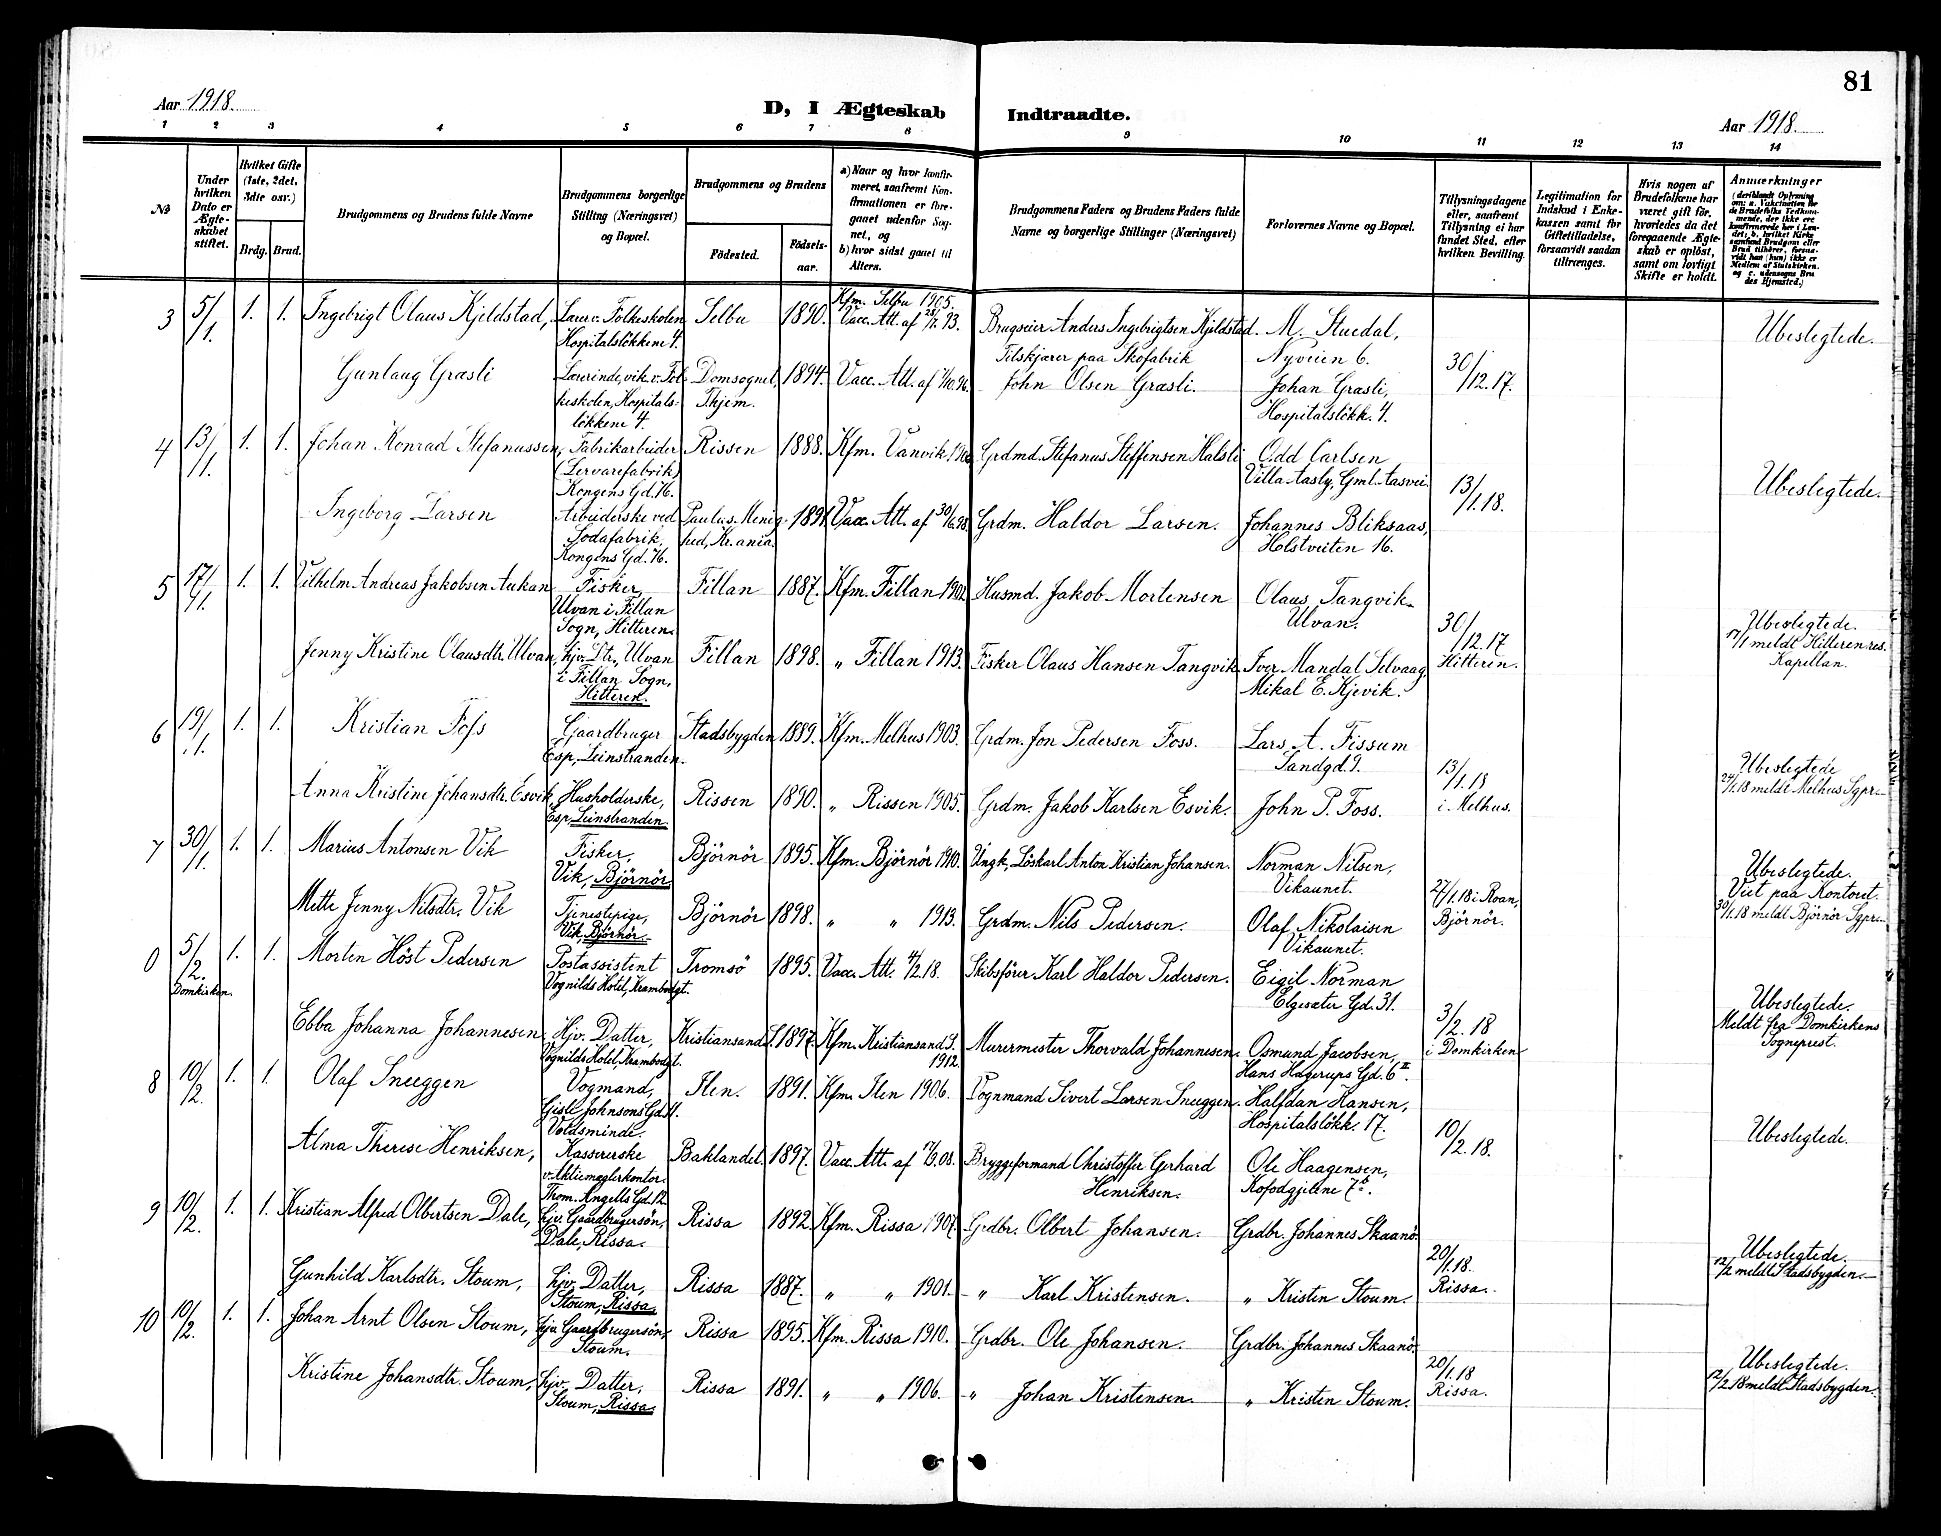 81
Aar 1918.
D, I Ægteskab Indtraadte.
Aar 1918.
1 2 3 4 5 6 7 8 9 10 11 12 13 14
№
Under hvilken Dato er Ægteskabet stiftet.
Hvilket Gifte (1ste, 2det, 3die osv.)
Brdg. Brud.
Brudgommens og Brudens fulde Navne
Brudgommens borgerlige Stilling (Næringsvei) og Bopæl.
Brudgommens og Brudens
Fødested.
Fødselsaar.
a) Naar og hvor konfirmeret, saafremt Konfirmationen er foregaaet udenfor Sognet, og
b) hvor sidst gaaet til Alters.
Brudgommens Faders og Brudens Faders fulde Navne og borgerlige Stillinger (Næringsvei)
Forlovernes Navne og Bopæl.
Tillysningsdagene eller, saafremt Tillysning ei har fundet Sted, efter hvilken Bevilling.
Legitimation for Indskud i Enkekassen samt for Giftetilladelse, forsaavidt saadan tiltrænges.
Hvis nogen af Brudefolkene har været gift før, hvorledes da det foregaaende Ægteskab er opløst, samt om lovligt Skifte er holdt.
Anmærkninger
3 5/1. 1. 1. Ingebrigt Olaus Kjeldstad, Lærer v. Folkeskolen Hospitalsløkkene 4. Selbu 1890. Kfm. Selbu 1905. Vacc. Att. af 28/7. 93. Brugseier Anders Ingebrigtsen Kjeldstad. M. Stuedal, Nyveien 6. Ubeslegtede.
Gunlaug Græsli Lærerinde, vik. v. Folkeskolen, Hospitalsløkkene 4. Domsognet, Thjem. 1894. Vacc. Att. af 7/10. 96. Tilskjærer paa Skofabrik John Olsen Græsli. Johan Græsli, Hospitalsløkk. 4. 30/12. 17.
4 13/1. 1. 1. Johan Konrad Stefanussen, Fabrikarbeider (Lervarefabrik) Kongens Gd. 76. Rissen 1888. Kfm. Vanvik Grdmd. Stefanus Steffensen Halsli Odd Carlsen Villa Aasly, Gml. Aasvei. 13/1. 18. Ubeslegtede.
Ingeborg Larsen Arbeiderske ved Sodafabrik, Kongens Gd. 76. Paulus. Menighed, Kr.ania. 1891. Vacc. Att. af 30/6. 98. Grdm. Haldor Larsen. Johannes Bliksaas, Holstveiten 16.
5 17/1. 1. 1. Vilhelm Andreas Jakobsen Aukan Fisker, Ulvan i Fillan Sogn, Hitteren. Fillan 1887. Kfm. Fillan 1902. Husmd. Jakob Mortensen Olaus Tangvik Ulvan. 30/12. 17 Hitteren. Ubeslegtede. 17/1 meldt Hitteren res. Kapellan.
Jenny Kristine Olausdtr. Ulvan, hjv. Dtr., Ulvan i Fillan Sogn, Hitteren. Fillan 1898. „ Fillan 1913. Fisker Olaus Hansen Tangvik. Iver Mandal Selvaag Mikal E. Kjevik.
6 19/1. 1. 1. Kristian Foss Gaardbruger Esp, Leinstranden. Stadsbygden 1889. Kfm. Melhus 1903. Grdm. Jon Pedersen Foss. Lars A. Fissum Sandgd. 9. 13/1. 18 i Melhus. Ubeslegtede 24/1. 18 meldt Melhus Sgpr.
Anna Kristine Johansdtr. Esvik, Husholderske, Esp Leinstranden. Rissen 1890. „ Rissen 1905. Grdm. Jakob Karlsen Esvik. John P. Foss.
7 30/1. 1. 1. Marius Antonsen Vik Fisker, Vik, Björnör. Björnör 1895. Kfm. Björnör 1910. Ungk., Löskarl Anton Kristian Johansen. Norman Nilsen, Vikaunet. 27/1. 18 i Roan, Björnör. Ubeslegtede. Viet paa Kontoret. 30/1. 18 meldt Björnör Sgpr.
Mette Jenny Nilsdtr. Vik Tjenestepige, Vik, Björnör. Björnör 1898. „ „ 1913. Grdm. Nils Pedersen. Olaf Nikolaisen Vikaunet.
0 5/2. Domkirken. 1. 1. Morten Höst Pedersen Postassistent Vognilds Hotel, Krambodgt. Tromsö 1895. Vacc. Att. 4/2. 18. Skibsförer Karl Haldor Pedersen. Eigil Norman Elgesæter Gd. 31. 3/2. 18 i Domkirken Ubeslegtede. Meldt fra Domkirkens Sogneprest.
Ebba Johanna Johannesen Hjv. Datter, Vognilds Hotel, Krambodgt. Kristiansand S. 1897. Kfm. Kristiansand S. 1912. Murermester Thorvald Johannesen. Osmund Jacobsen, Hans Hagerups Gd. 6 II.
8 10/2. 1. 1. Olaf Sneeggen Vogmand, Gisle Johnsons Gd. 1. Voldsminde. Ilen. 1891. Kfm. Ilen 1906. Vognmand Sivert Larsen Sneeggen. Halfdan Hansen, Hospitalsløkk. 17. 10/2. 18. Ubeslegtede.
Alma Therese Henriksen, Kassererske v. Aktiemæglerkontor. Thom. Angells Gd. 12. Baklandet. 1897. Vacc. Att. af 17/9. 08. Bryggeformand Christoffer Gerhard Henriksen. Ole Haagensen, Kofodgjelene 7 b.
9 10/2. 1. 1. Kristian Alfred Olbertsen Dale, hjv. Gaardbrugersön, Dale, Rissa. Rissa 1892. Kfm. Rissa 1907. Grdbr. Olbert Johansen. Grdbr. Johannes Skaanö. 20/1. 18. Rissa. Ubeslegtede. 12/2 meldt Stadsbygden.
Gunhild Karlsdtr. Stoum, hjv. Datter, Stoum, Rissa. Rissa 1887. „ „ 1901. „ Karl Kristensen. „ Kristen Stoum.
10 10/2. 1. 1. Johan Arnt Olsen Stoum, hjv. Gaardbrugersön, Stoum. Rissa 1895. Kfm. Rissa 1910. Grdbr. Ole Johansen. Grdbr. Johannes Skaanö. 20/1. 18 Rissa. Ubeslegtede. 12/2. 18 meldt Stadsbygden.
Kristine Johansdtr. Stoum, hjv. Datter, Stoum, Rissa. Rissa 1891. „ „ 1906. „ Johan Kristensen. „ Kristen Stoum.